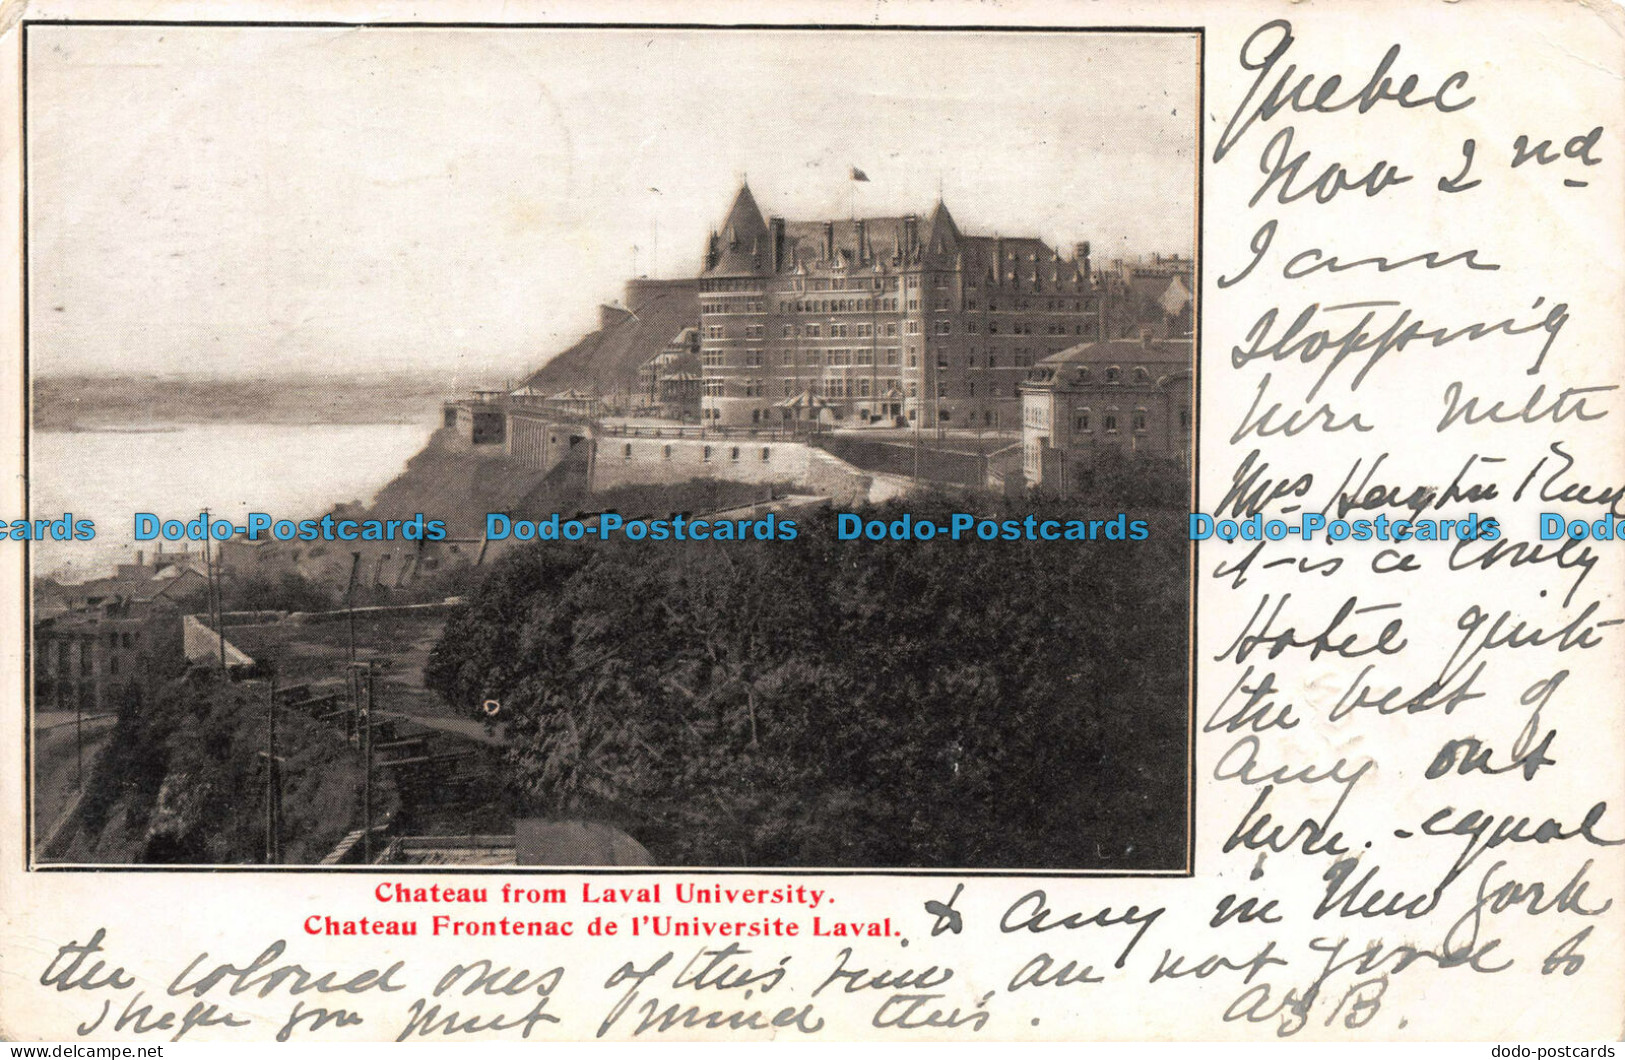 Quebec
Nov 2nd
I am
stopping
here with
Mrs
it is a lovely
Hotel quite
the best of
any out
here. - equal
to any in New York
the colord ones of this view are not good so
I hope you must mind this.
A B.
Chateau from Laval University.
Chateau Frontenac de l'Universite Laval.
cards Dodo-Postcards Dodo-Postcards Dodo-Postcards Dodo-Postcards Dodo
dodo-postcards